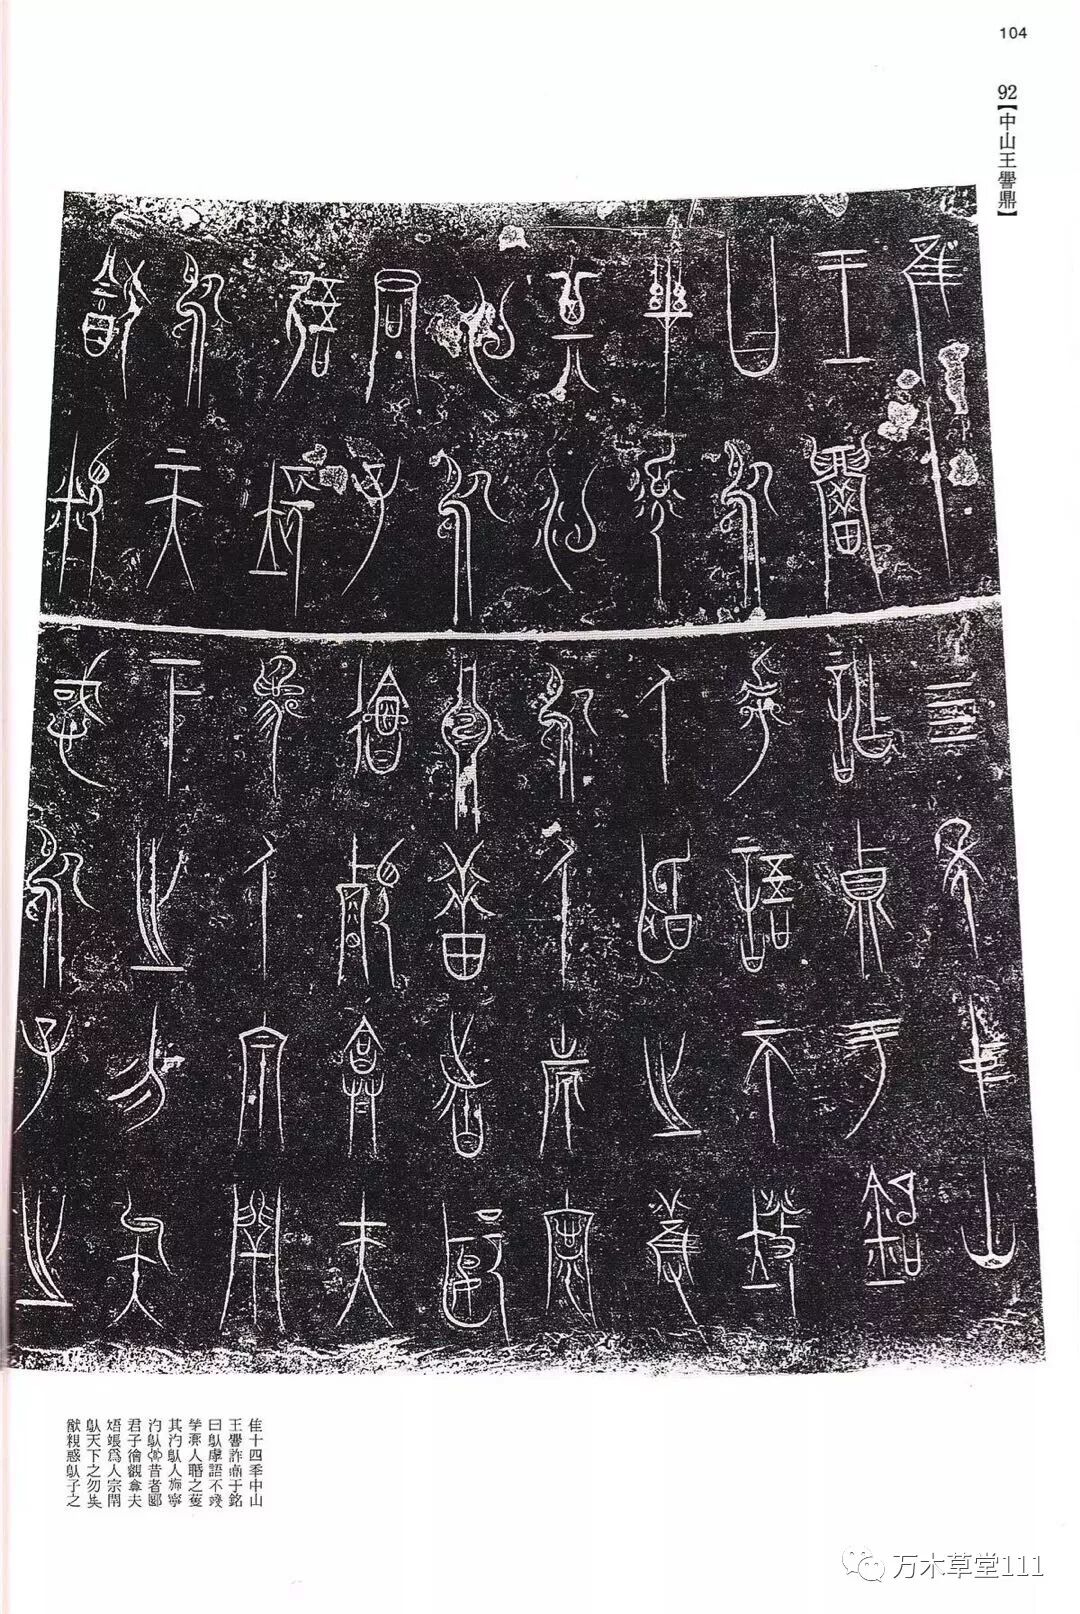 104
92【中山王譽鼎】
隹十四年中山
王譽詐貞于銘
曰於虖語不竣
孳寡人聞之蒦
其汋於人施寧
汋於淵昔者郾
君子徻觀弇夫
㛩張爲人宗閈
於天下之勿矣
猷親惑於子之
万木草堂111